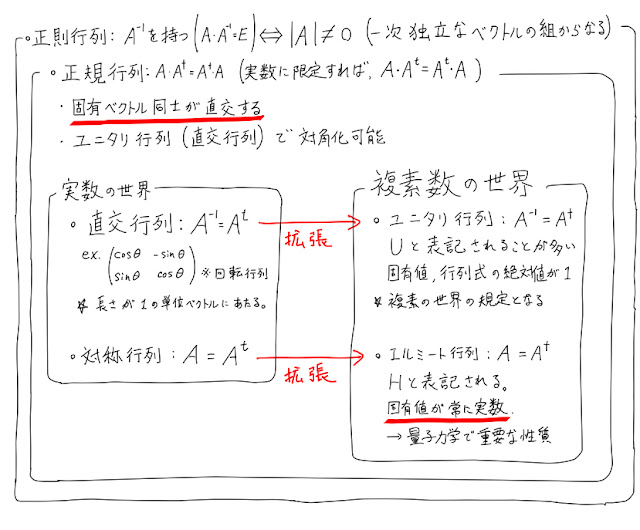 ○ 正則行列: A⁻¹を持つ(A・A⁻¹=E)⇔|A|≠0 (一次独立なベクトルの組からなる)
○ 正規行列: A・A†=A†・A (実数に限定すれば, A・Aᵗ=Aᵗ・A)
・固有ベクトル同士が直交する
・ユニタリ行列(直交行列)で対角化可能
実数の世界
○ 直交行列: A⁻¹=Aᵗ
ex. (cosθ -sinθ
sinθ cosθ) ※回転行列
※ 長さが1の単位ベクトルにあたる。
○ 対称行列: A=Aᵗ
拡張
拡張
複素数の世界
○ ユニタリ行列: A⁻¹=A†
Uと表記されることが多い
固有値,行列式の絶対値が1
※ 複素の世界の規定となる
○ エルミート行列: A=A†
Hと表記される。
固有値が常に実数.
→量子力学で重要な性質